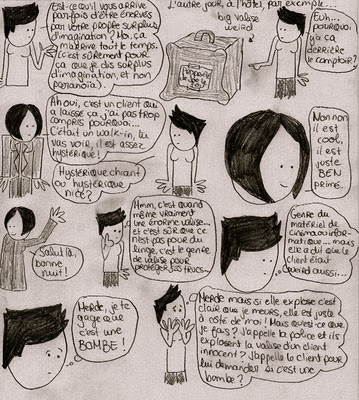 Est-ce qu'il vous arrive
parfois d'être énervés
par votre propre surplus
d'imagination? Moi, ça
m'arrive tout le temps.
(c'est sûrement pour
ça que je dis surplus
d'imagination, et non
paranoïa).
L'autre jour, à l'hôtel, par exemple...
big valise
weird
Euh...
pourquoi
y'a ça
derrière
le comptoir?
Ah oui, c'est un client qui
a laissé ça, j'ai pas trop
compris pourquoi...
C'était un walk-in, tu
vas voir, il est assez
hystérique!
Hystérique chiant
ou hystérique
nice?
Non non
il est
cool,
il est
juste
BEN
primé...
Salut là,
bonne
nuit!
Hmm, c'est quand
même vraiment
une énorme valise...
et c'est sûr que ce
n'est pas pour du
linge, c'est le genre
de valise pour
protéger des trucs...
Genre du
matériel de
cinéma ou infor-
matique... mais
elle a dit que le
client était
weird aussi...
Merde, je te
gage que
c'est une
BOMBE!
Merde mais si elle explose c'est
clair que je meurs, elle est juste
à côté de moi! Mais qu'est-ce que
je fais? J'appelle la police et ils
explosent la valise d'un client
innocent? J'appelle le client pour
lui demander si c'est une
bombe?